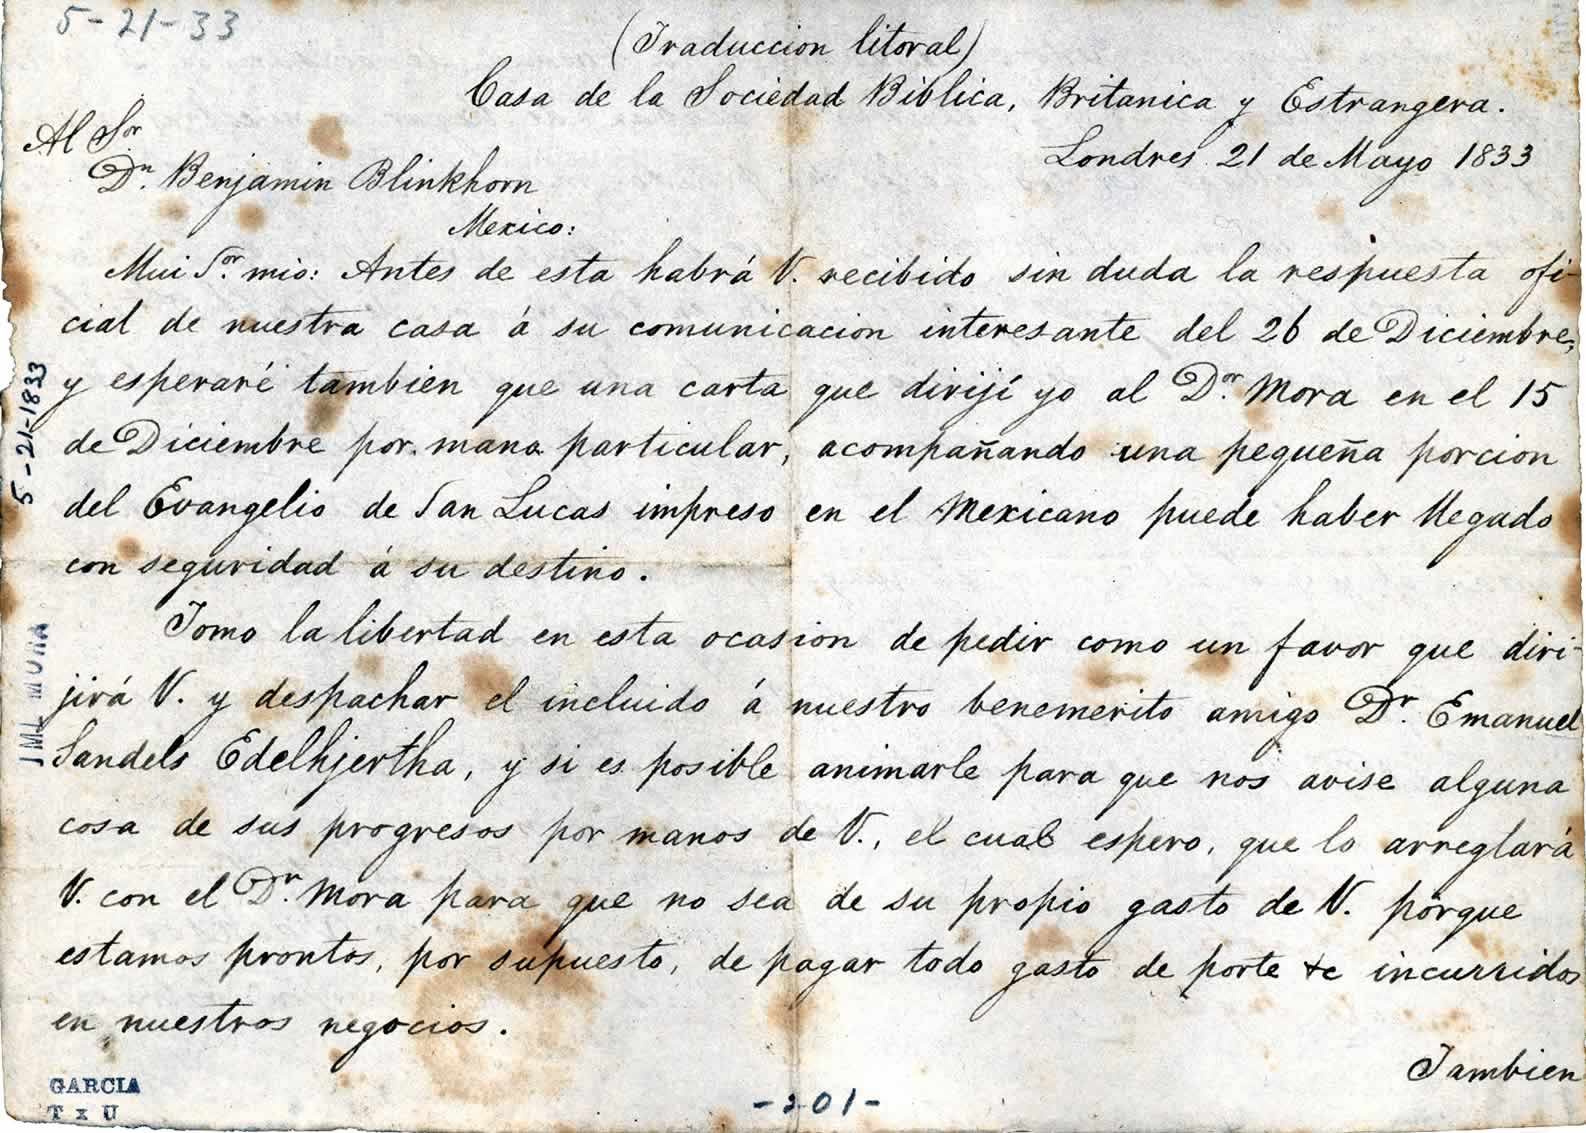 5-21-33
(Traduccion litoral)
Casa de la Sociedad Biblica, Britanica y Estrangera.
Al Sor
Dn. Benjamin Blinkhorn
Londres 21 de Mayo 1833
Mexico:
Mui Sor. mio: Antes de esta habrá V. recibido sin duda la respuesta ofi-
cial de nuestra casa á su comunicacion interesante del 26 de Diciembre,
y esperaré tambien que una carta que dirijí yo al Dor. Mora en el 15
de Diciembre por mano particular, acompañando una pequeña porcion
del Evangelio de San Lucas impreso en el Mexicano puede haber llegado
con seguridad á su destino.
Tomo la libertad en esta ocasion de pedir como un favor que diri-
jirá V. y despachar el incluido á nuestro benemerito amigo Dr. Emanuel
Sandels Edelhjertha, y si es posible animarle para que nos avise alguna
cosa de sus progresos por manos de V., el cual espero, que lo arreglará
V. con el Dr. Mora para que no sea de su propio gasto de V. porque
estamos prontos, por supuesto, de pagar todo gasto de porte &c incurridos
en nuestros negocios.
Tambien
5-21-1833
JML MORA
GARCIA
T x U
-201-